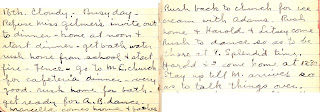 18th. Cloudy. Busy day -
Refuse Miss Gilmer's invite out
to dinner - home at noon &
start dinner - get bath water
rush home from school & start
fire - fence - go to M. E. Church
for cafeteria dinner - very
good. rush home for bath -
get ready for A. B. dance -
home &
Rush back to church for ice
cream with Adams. Rush
home & Harold & Litsey come
Rush to dance so as to be
there & Splendid time.
Harold & I come home at 12
Stay up till M. arrives so
as to talk things over.